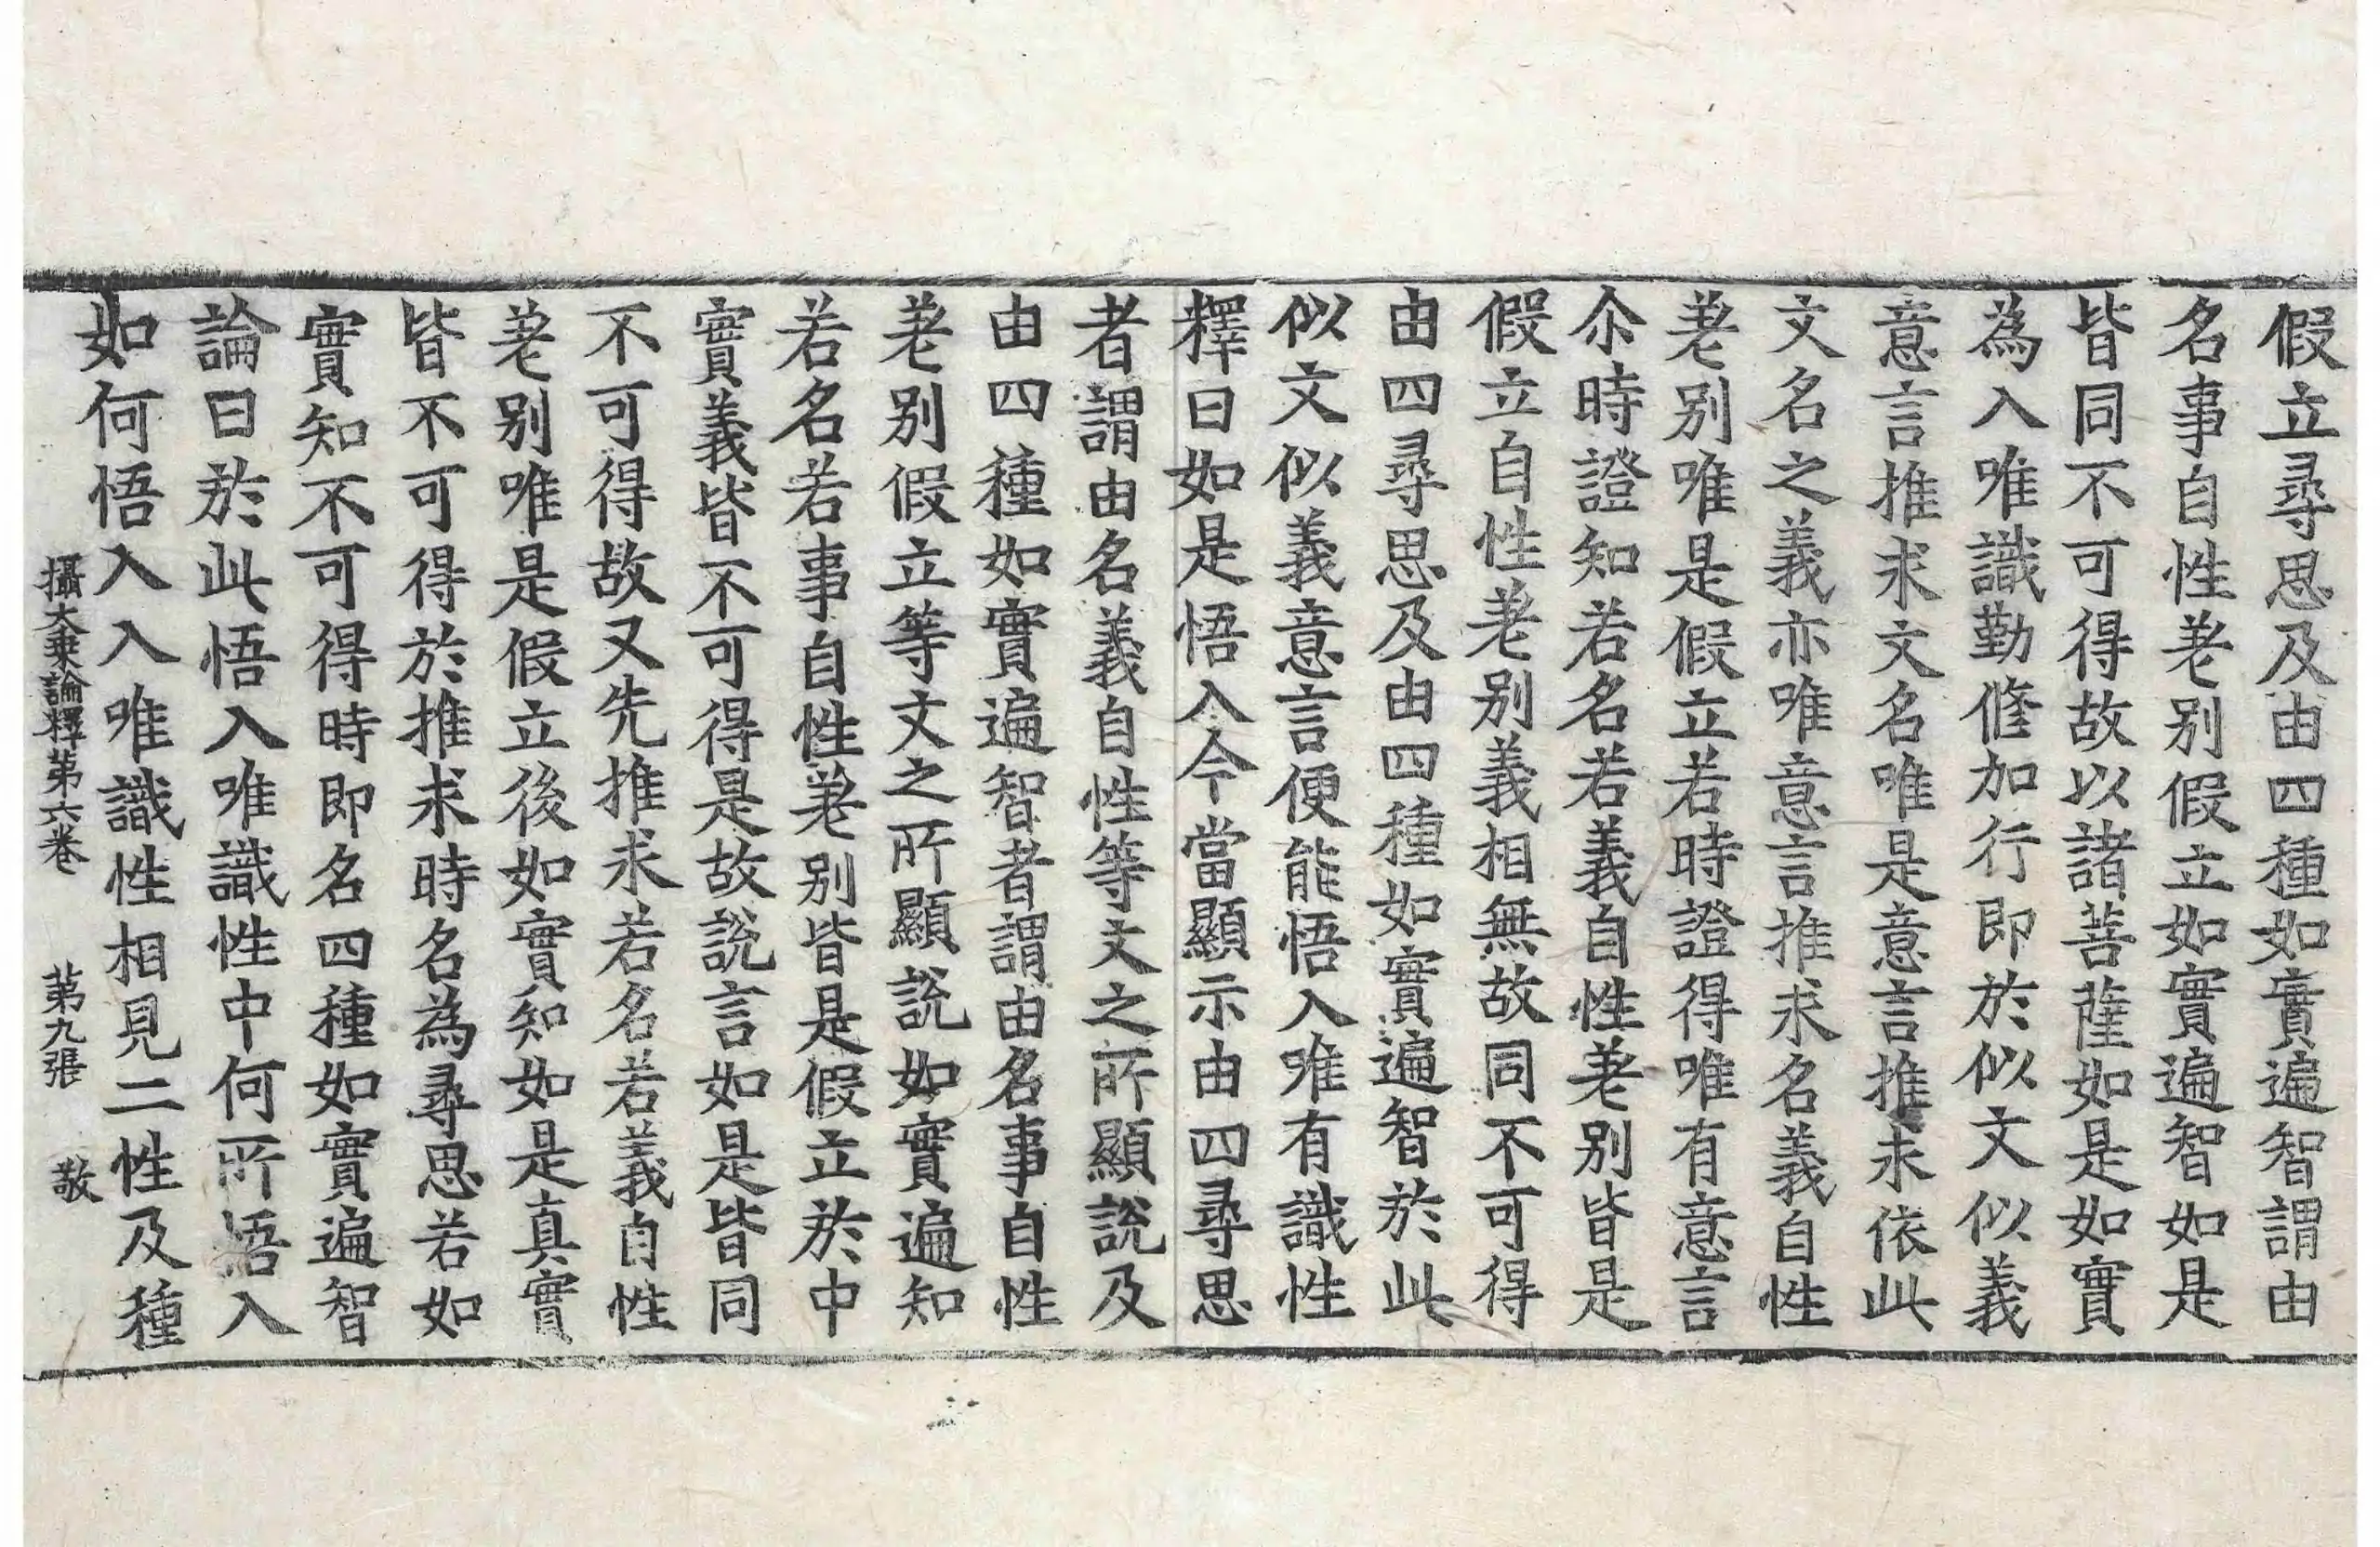 假立尋思及由四種如實遍智謂由
名事自性差別假立如實遍智如是
皆同不可得故以諸菩薩如是如實
為入唯識勤修加行即於似文似義
意言推求文名唯是意言推求依此
文名之義亦唯意言推求名義自性
差別唯是假立若時證得唯有意言
尒時證知若名若義自性差別皆是
假立自性差別義相無故同不可得
由四尋思及由四種如實遍智於此
似文似義意言便能悟入唯有識性
釋曰如是悟入今當顯示由四尋思
者謂由名義自性等文之所顯說及
由四種如實遍智者謂由名事自性
差別假立等文之所顯說如實遍知
若名若事自性差別皆是假立於中
實義皆不可得是故說言如是皆同
不可得故又先推求若名若義自性
差別唯是假立後如實知如是真實
皆不可得於推求時名為尋思若如
實知不可得時即名四種如實遍智
論曰於此悟入唯識性中何所悟入
如何悟入入唯識性相見二性及種
攝大乘論釋第六卷 第九張 敬